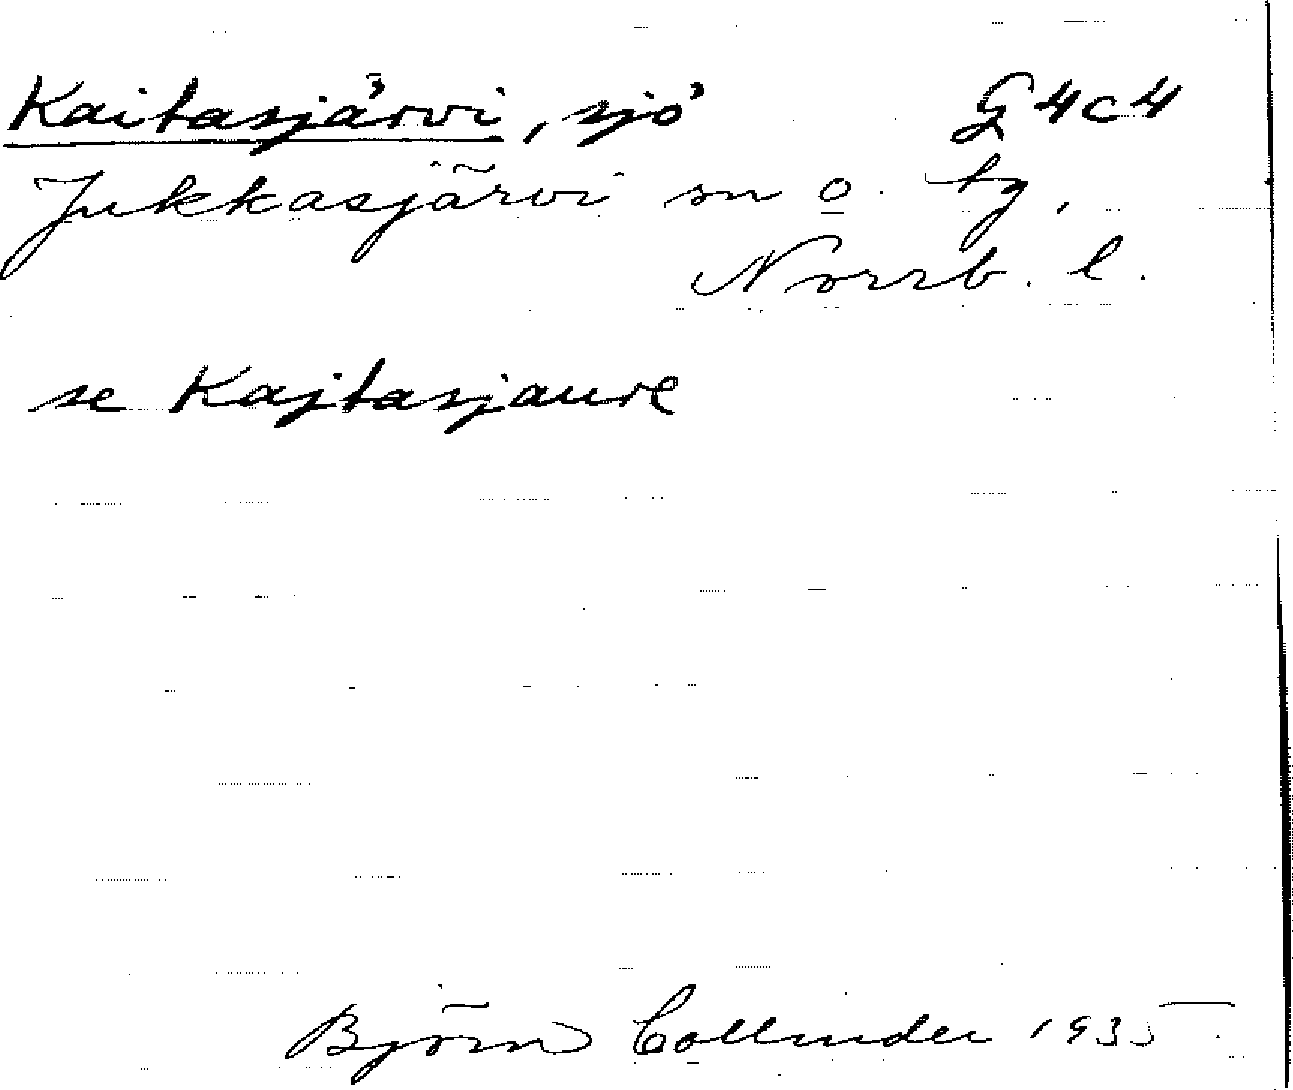 Kaitasjärvi, sjö G 4 c 4
Jukkasjärvi sn o. tg,
Norrb. l.
se Kajtasjaure
Björn Collinder 1935.